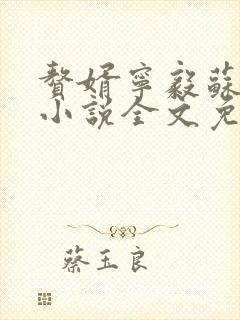 贅婿寧毅蘇
小說全文免
蔡玉良